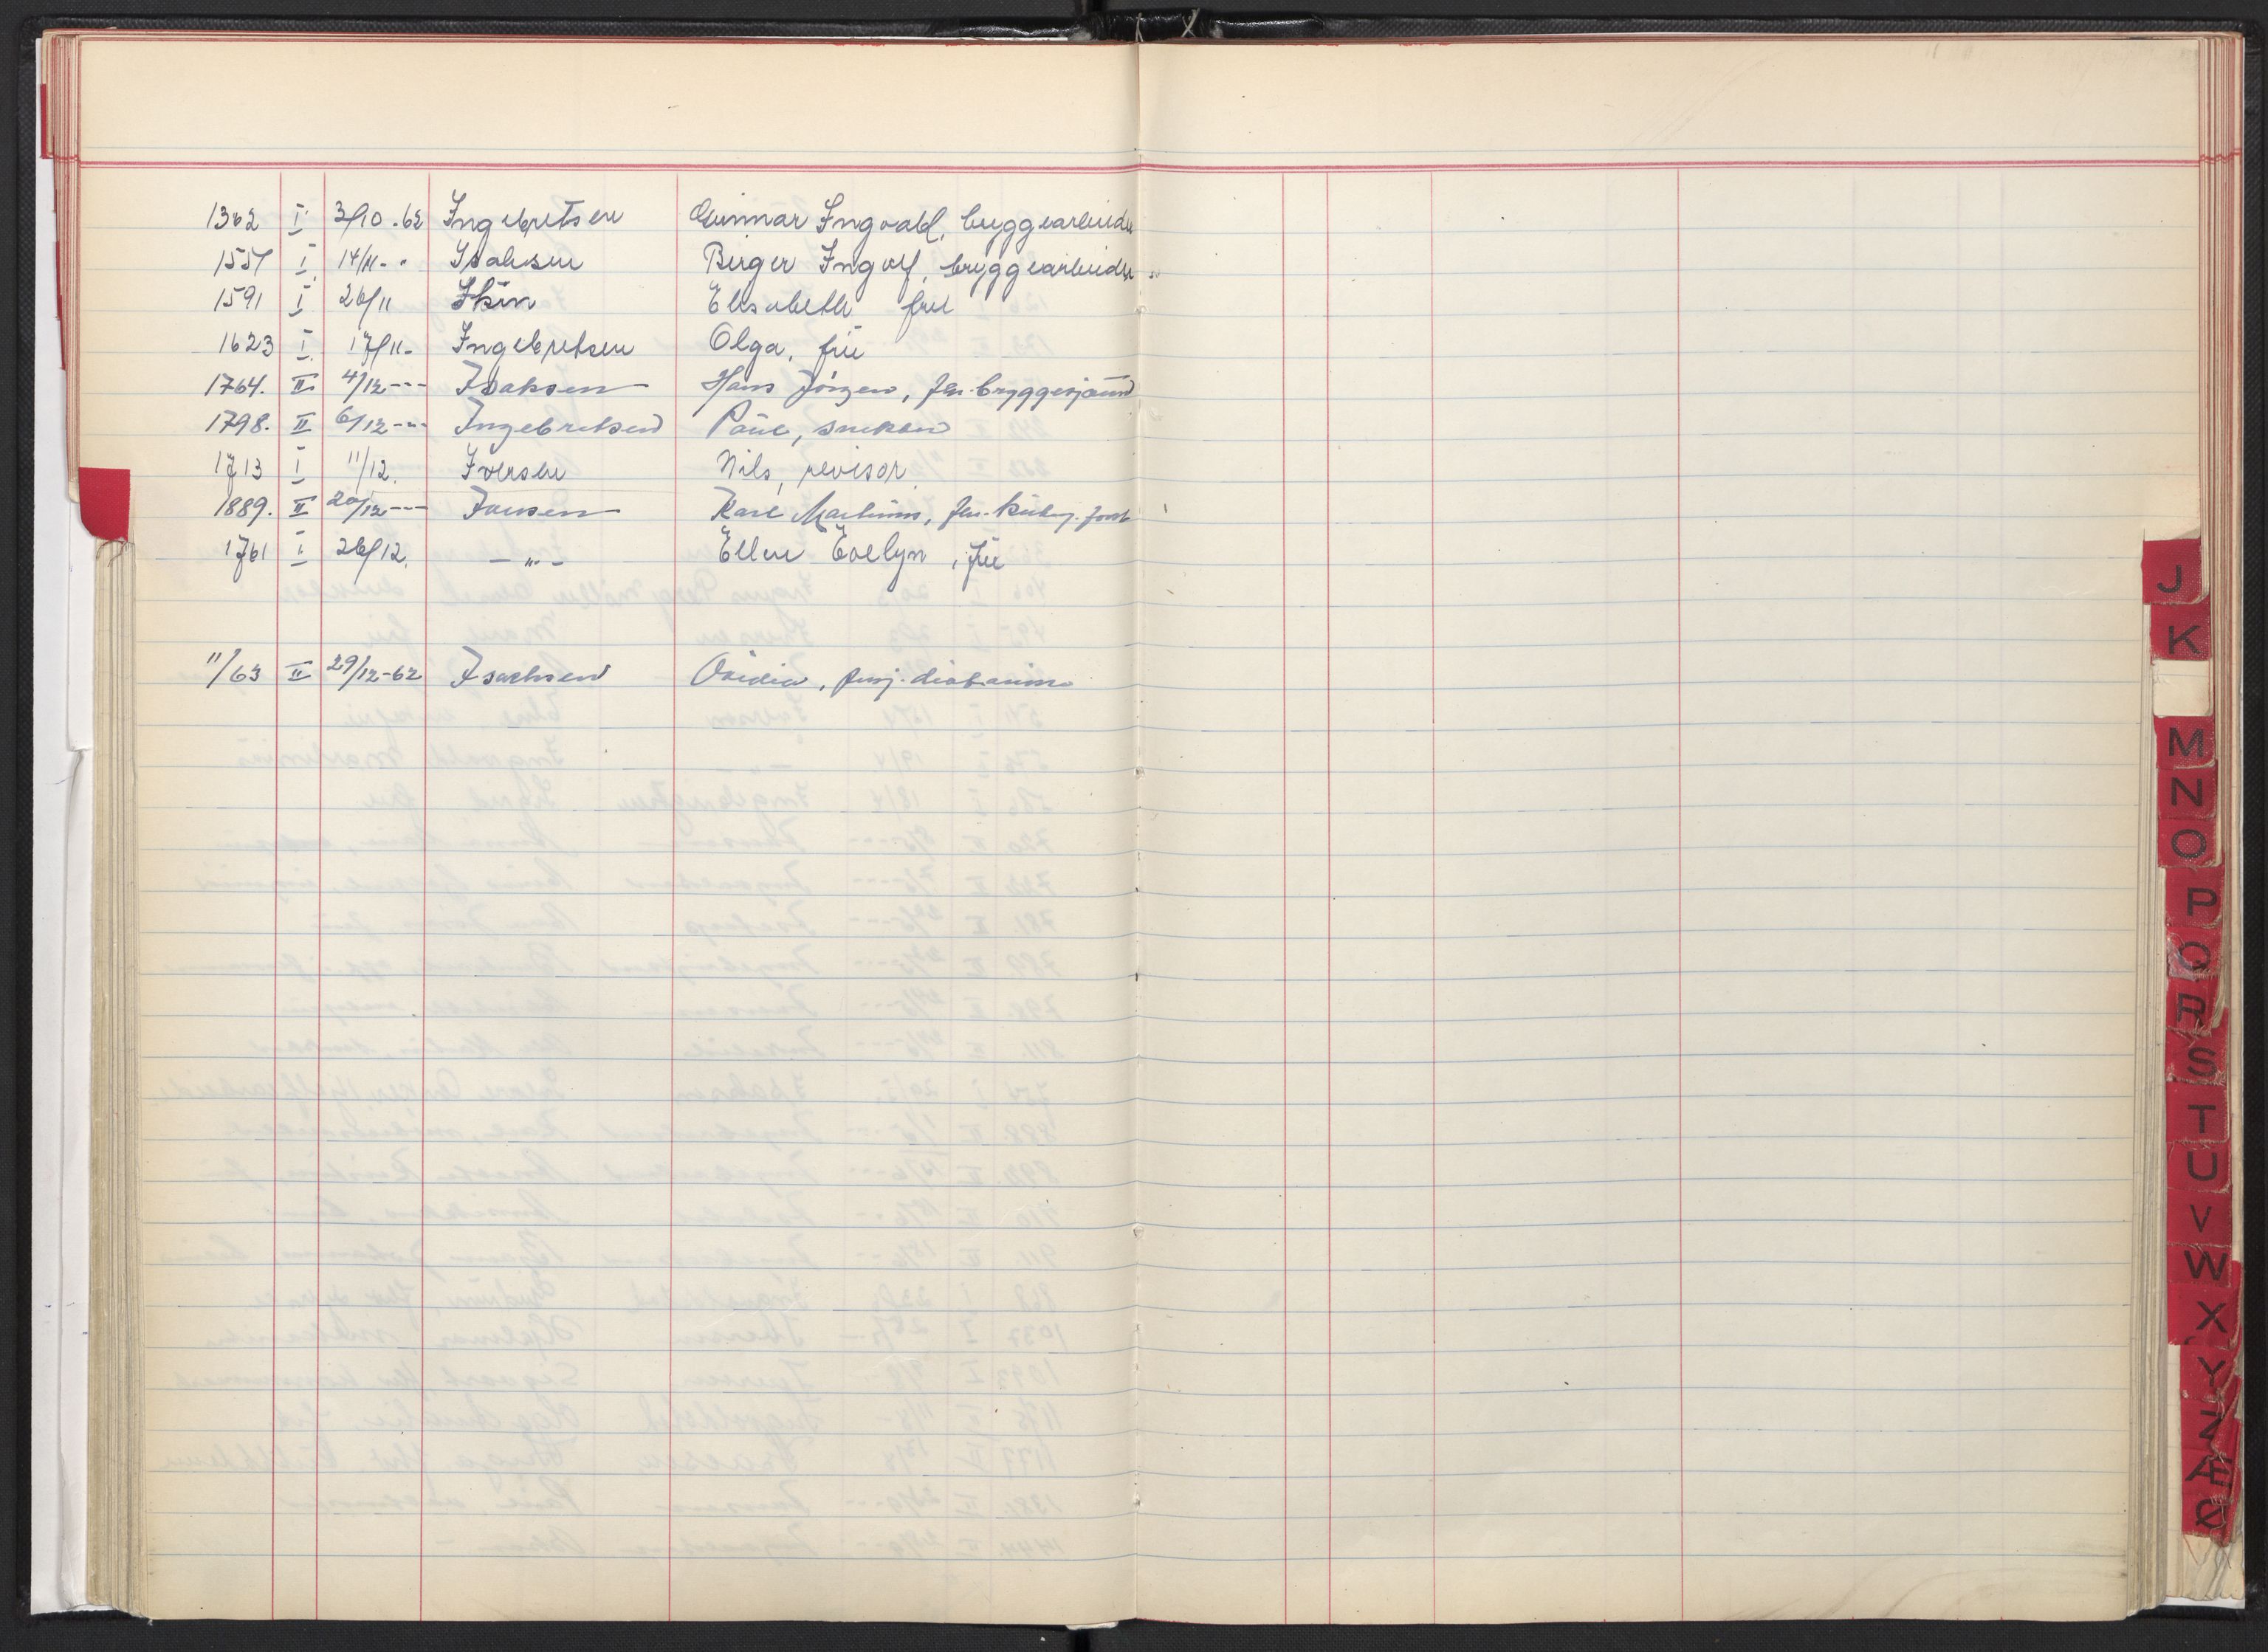 1362 I 3/10.62 Ingebretsen Gunnar Ingvald, bryggearbeider
1557 I 14/11-" Isaksen Birger Ingolf, bryggearbeider
1591 I 26/11 Elisabeth frue
1623 I 17/11- Ingebretsen Olga, frue
1764. II 4/12--- Isaksen Hans Jörgen, fhv. bryggesjaund
1798. II 6/12-"- Ingebretsen Paul, snekker
1713 I 11/12. Iversen Nils, revisor
1889. II 20/12--- Karl Martinus, fhv.
1761 I 26/12. -"- Ellen Evelyn, frue
11/63 II 29/12-62 Isachsen Ovidia, pensj. diakonisse
J
K
M
N
O
P
Q
R
S
T
U
V
W
X
Y
Z
Æ
Ø